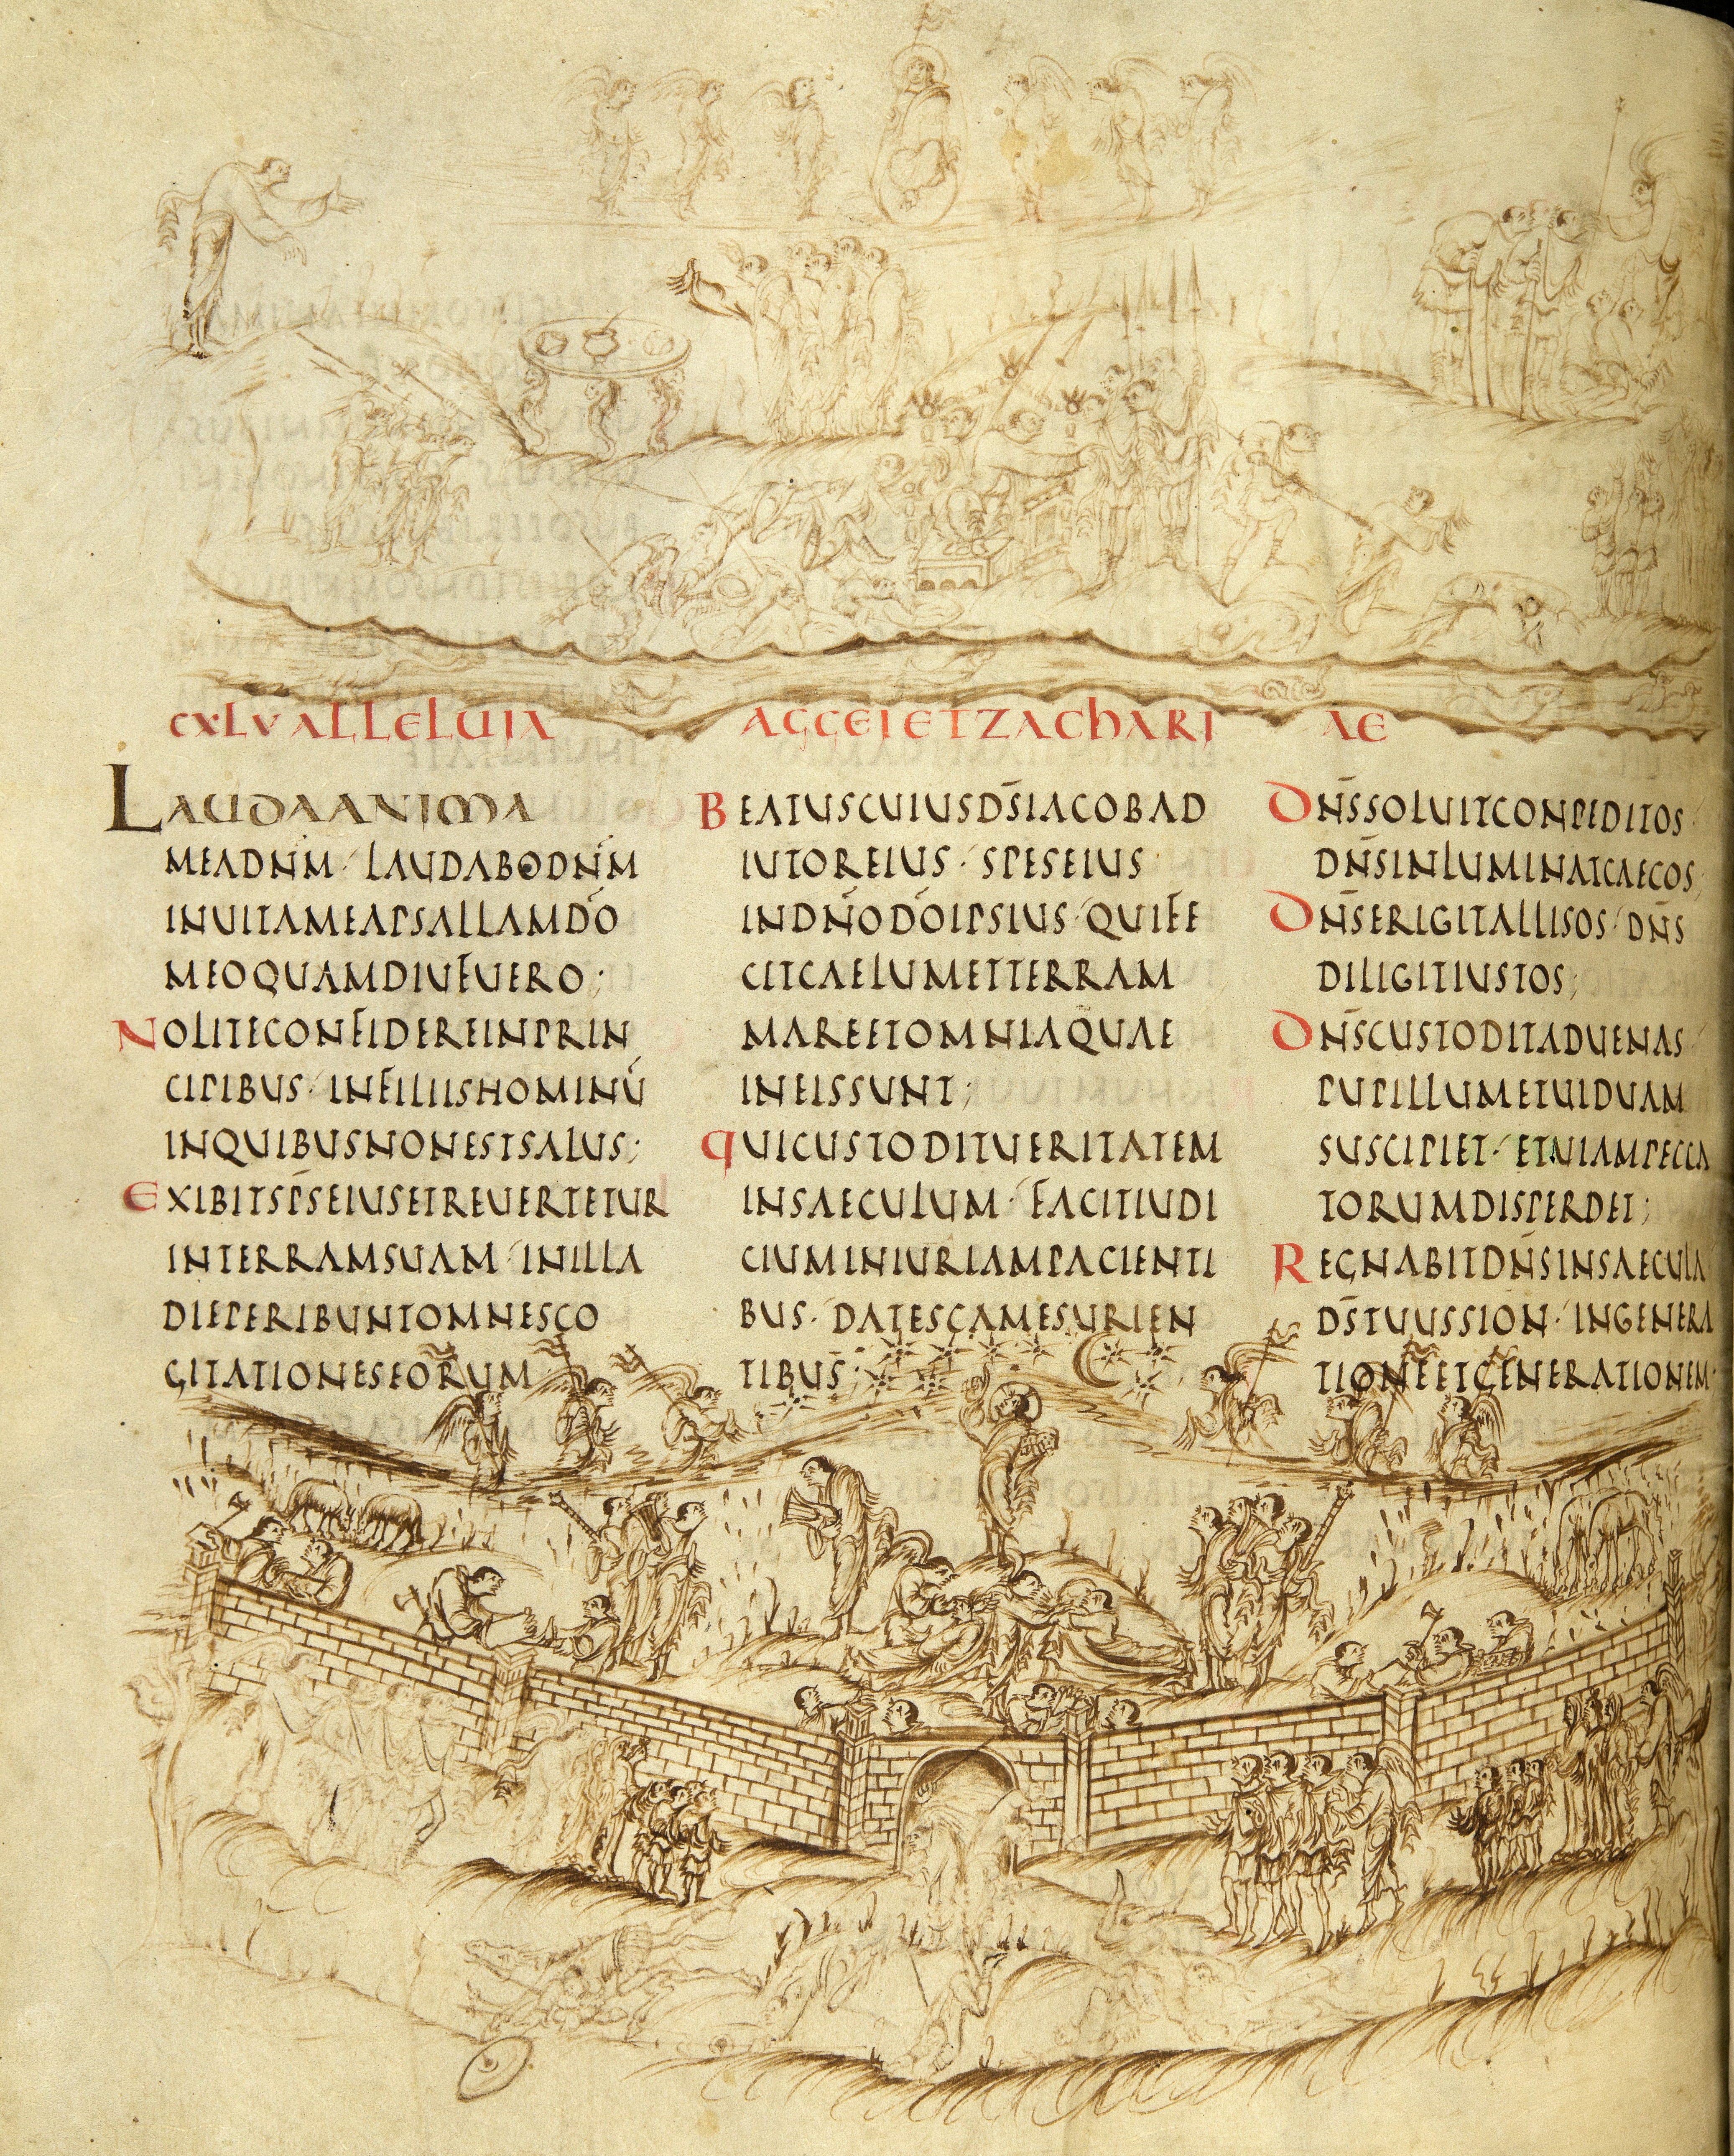 CXLV ALLELUIA AGGEI ET ZACHARIAE
LAUDA ANIMA
MEA DN̄M · LAUDABO DN̄M
IN UITA MEA PSALLAM DŌ
MEO QUAMDIU FUERO;
NOLITE CONFIDERE IN PRIN
CIPIBUS · IN FILIIS HOMINŪ
IN QUIBUS NON EST SALUS;
EXIBIT SP̄S EIUS ET REUERTETUR
IN TERRAM SUAM · IN ILLA
DIE PERIBUNT OMNES CO
GITATIONES EORUM
BEATUS CUIUS DS̄ IACOB AD
IUTOR EIUS · SPES EIUS
IN DN̄O DŌ IPSIUS · QUI FE
CIT CAELUM ET TERRAM
MARE ET OMNIA QUAE
IN EIS SUNT;
QUI CUSTODIT UERITATEM
IN SAECULUM · FACIT IUDI
CIUM INIURIAM PACIENTI
BUS · DAT ESCAM ESURIEN
TIBUS;
DN̄S SOLUIT CONPEDITOS
DN̄S INLUMINAT CAECOS;
DN̄S ERIGIT ALLISOS · DN̄S
DILIGIT IUSTOS;
DN̄S CUSTODIT ADUENAS
PUPILLUM ET UIDUAM
SUSCIPIET · ET UIAM PECCA
TORUM DISPERDET;
REGNABIT DN̄S IN SAECULA
DS̄ TUUS SION · IN GENERA
TIONE ET GENERATIONEM·